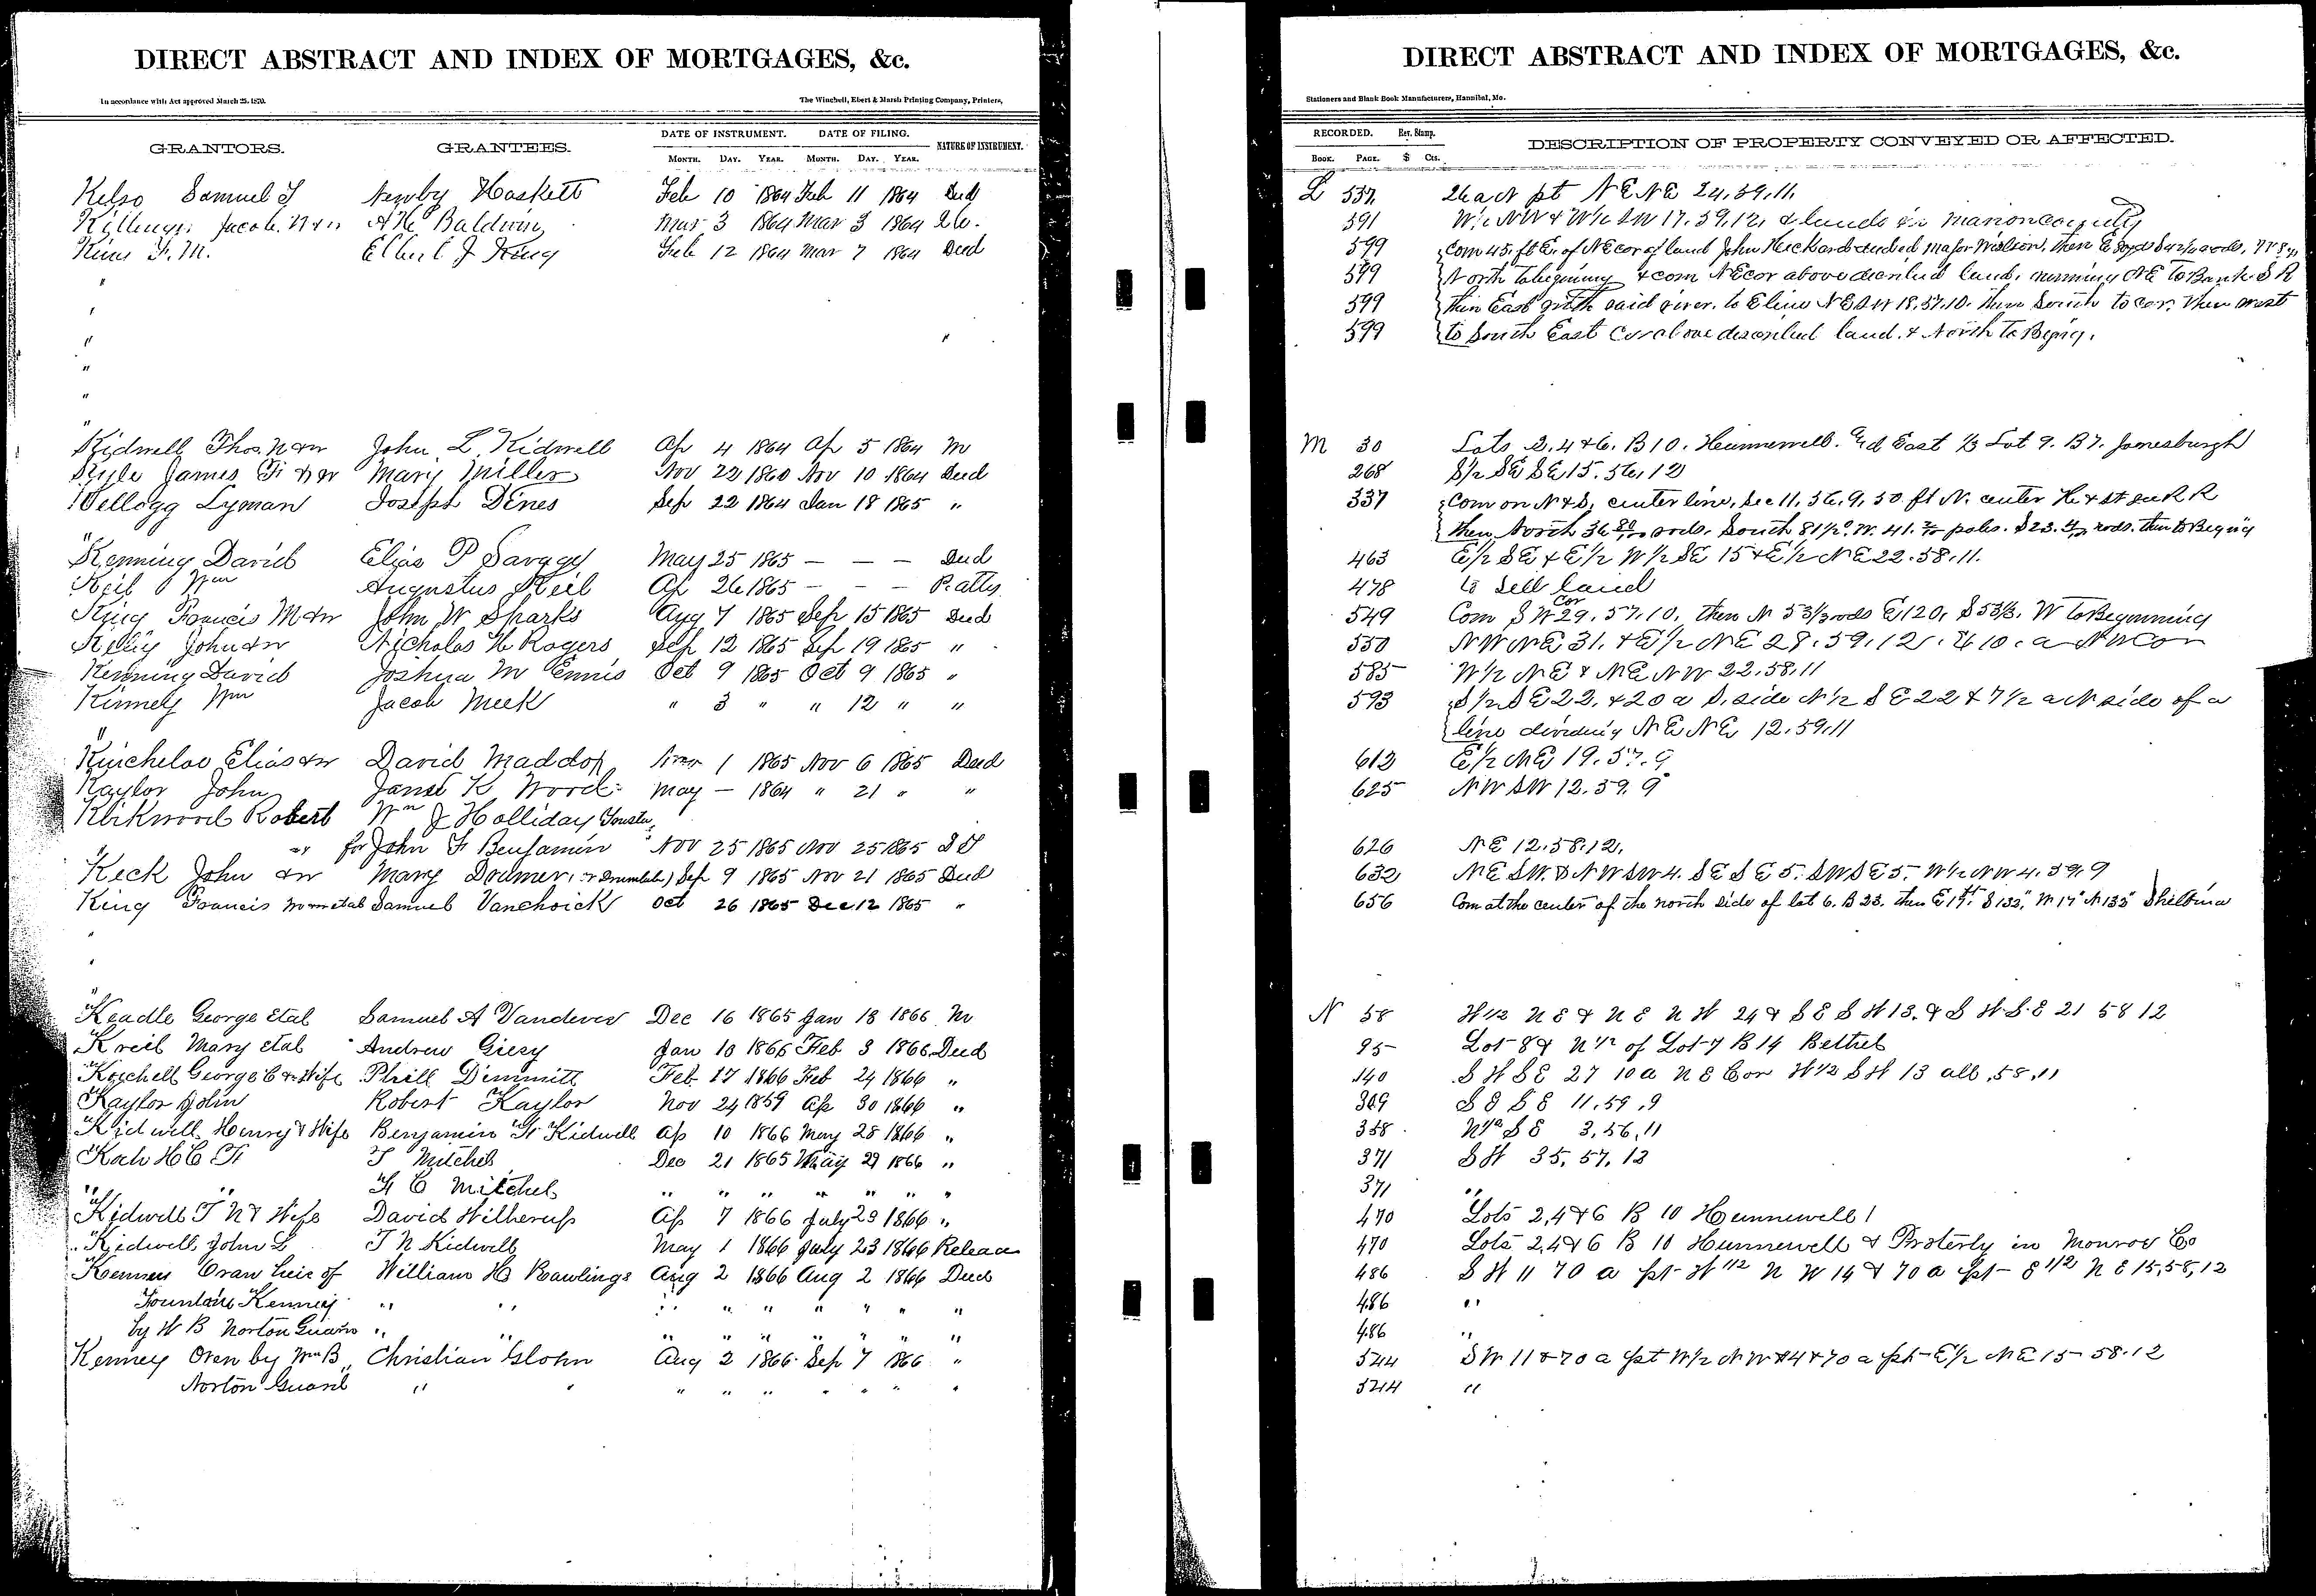 DIRECT ABSTRACT AND INDEX OF MORTGAGES, &c.
In accordance with Act approved March 25, 1870.
The Winchell, Ebert & Marsh Printing Company, Printers,
DATE OF INSTRUMENT. DATE OF FILING.
GRANTORS. GRANTEES. NATURE OF INSTRUMENT.
MONTH. DAY. YEAR. MONTH. DAY. YEAR.
Kelso Samuel T Newby Haskett Feb 10 1864 Feb 11 1864 Deed
Jacob A K Baldwin Mar 3 1864 Mar 3 1864
King F. M. Elbert J King Feb 12 1864 Mar 7 1864 Deed
"
"
" "
"
"
"
Kidwell Thos. N & W John L Kidwell Ap 4 1864 Ap 5 1864 M
James F & W Mary Miller Nov 22 1860 Nov 10 1864 Deed
Kellogg Lyman Joseph Dines Sep 22 1864 Jan 18 1865 "
Kenning David Elias P May 25 1865 – – – Deed
Keil Wm Augustus Keil Ap 26 1865 – – – P. atty
King Francis M & W John W Sparks Aug 7 1865 Sep 15 1865 Deed
John & W Nicholas H Rogers Sep 12 1865 Sep 19 1865 "
Kenning David Joshua M Ennis Oct 9 1865 Oct 9 1865 "
Kinnely Wm Jacob Meek " 3 " " 12 " "
"
Kincheloe Elias & W David Maddox 1 1865 Nov 6 1865 Deed
Kaylor John K Wood May – 1864 " 21 " "
Kirkwood Robert Wm J Holliday Trustee
" " for John F Benjamin Nov 25 1865 Nov 25 1865 D T
Keck John & W Mary Sep 9 1865 Nov 21 1865 Deed
King Francis M et al Samuel Vanchoick Oct 26 1865 Dec 12 1865 "
"
"
"
Keadle George et al Samuel A Vandever Dec 16 1865 Jan 18 1866 M
Kreil Mary et al Andrew Giesy Jan 10 1866 Feb 3 1866 Deed
George C & Wife Phill Dimmitt Feb 17 1866 Feb 24 1866 "
Kaylor John Robert Kaylor Nov 24 1859 Ap 30 1866 "
Kidwell Henry & Wife Benjamin F Kidwell Ap 10 1866 May 28 1866 "
Koch H C F T Mitchel Dec 21 1865 May 29 1866 "
" " H C Mitchel " " " " " " "
Kidwell T N & Wife David Witherup Ap 7 1866 July 23 1866 "
Kidwell John L T N Kidwell May 1 1866 July 23 1866 Release
Kenney Oran heir of William H Rawlings Aug 2 1866 Aug 2 1866 Deed
Fountain Kenney " " " " " " " " "
by W B Norton Guard " " " " " " " " "
Kenney Oren by Wm B Christian Glohn Aug 2 1866 Sep 7 1866 "
Norton Guard " " " " " " " " "
DIRECT ABSTRACT AND INDEX OF MORTGAGES, &c.
Stationers and Blank Book Manufacturers, Hannibal, Mo.
RECORDED. Rev. Stamp. DESCRIPTION OF PROPERTY CONVEYED OR AFFECTED.
BOOK. PAGE. $ Cts.
L 537 26 a N pt NE NE 24.59.11
591 W½ NW & W½ SW 17.59.12, & lands in Marion county
599 Com 45 ft E. of NE cor of land John
599 North to begining & com NE cor above land, running NE to Bank S R
599 then East with said river, to E line 18.57.10. then South to cor. then west
599 to South East Cor above described land. & North to Begng.
M 30 Lots 2.4 & 6. B 10. Hunnewell. East ½ Lot 9. B 7. Jonesburgh
268 S½ SE SE 15.56.12
337 Com on N & S, center line, Sec 11.56.9, 50 ft N. center H. & St Jo R R
then North 36 rods. South 81½° W. 41. poles. S 23. rods. then to Begng
463 E½ SE & E½ W½ SE 15 & E½ NE 22.58.11.
478 to sell land
549 Com S W Cor 29.57.10. then N 53⅓ rods E 120, S 53⅓. W to Beginning
550 NW NE 31. & E½ NE 28.59.12. & 10. a NW cor
585 W½ NE & NE NW 22.58.11
593 S½ SE 22. & 20 a S. side N½ SE 22 & 7½ a N side of a
line dividing NE NE 12.59.11
612 E½ NE 19.57.9
625 NW SW 12.59.9
626 NE 12.58.12.
632 NE SW. & NW SW 4. SE SE 5. SW SE 5. W½ NW 4.59.9
656 Com at the center of the north side of lot 6. B 23. then E 17. S 132. W 17 N 132 Shelbina
N 58 W½ NE & NE NW 24 & SE SW 13. & SW SE 21 58 12
95 Lot 8 & N½ of Lot 7 B 14 Bethel
140 SW SE 27 10 a NE Cor W½ SW 13 all, 58, 11
309 SE SE 11, 59, 9
358 N½ SE 3, 56, 11
371 SW 35, 57, 12
371 "
470 Lots 2, 4 & 6 B 10 Hunnewell
470 Lots 2, 4 & 6 B 10 Hunnewell & Proterty in Monroe Co
486 SW 11 70 a pt W½ NW 14 & 70 a pt E½ NE 15, 58, 12
486 "
486 "
544 SW 11 & 70 a pt W½ NW 14 & 70 a pt E½ NE 15 58.12
544 "